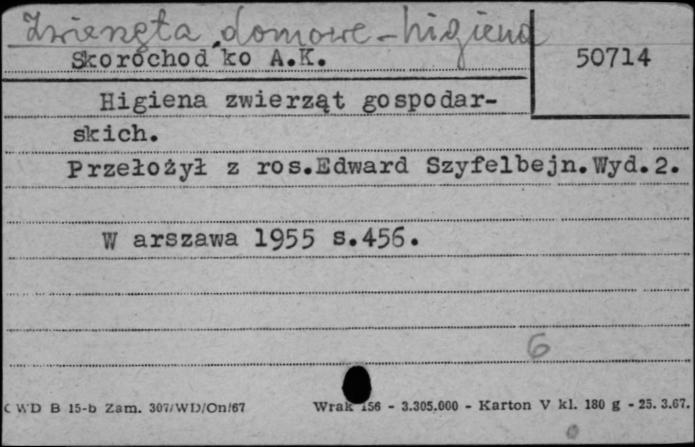 Zwierzęta domowe - higiena
Skorochod ko A.K.
50714
Higiena zwierząt gospodar-
skich.
Przełożył z ros.Edward Szyfelbejn.Wyd.2.
W arszawa 1955 s.456.
6
CWD B 15-b Zam. 307/WD/On/67 Wrak 156 - 3.305.000 - Karton V kl. 180 g - 25. 3.67.